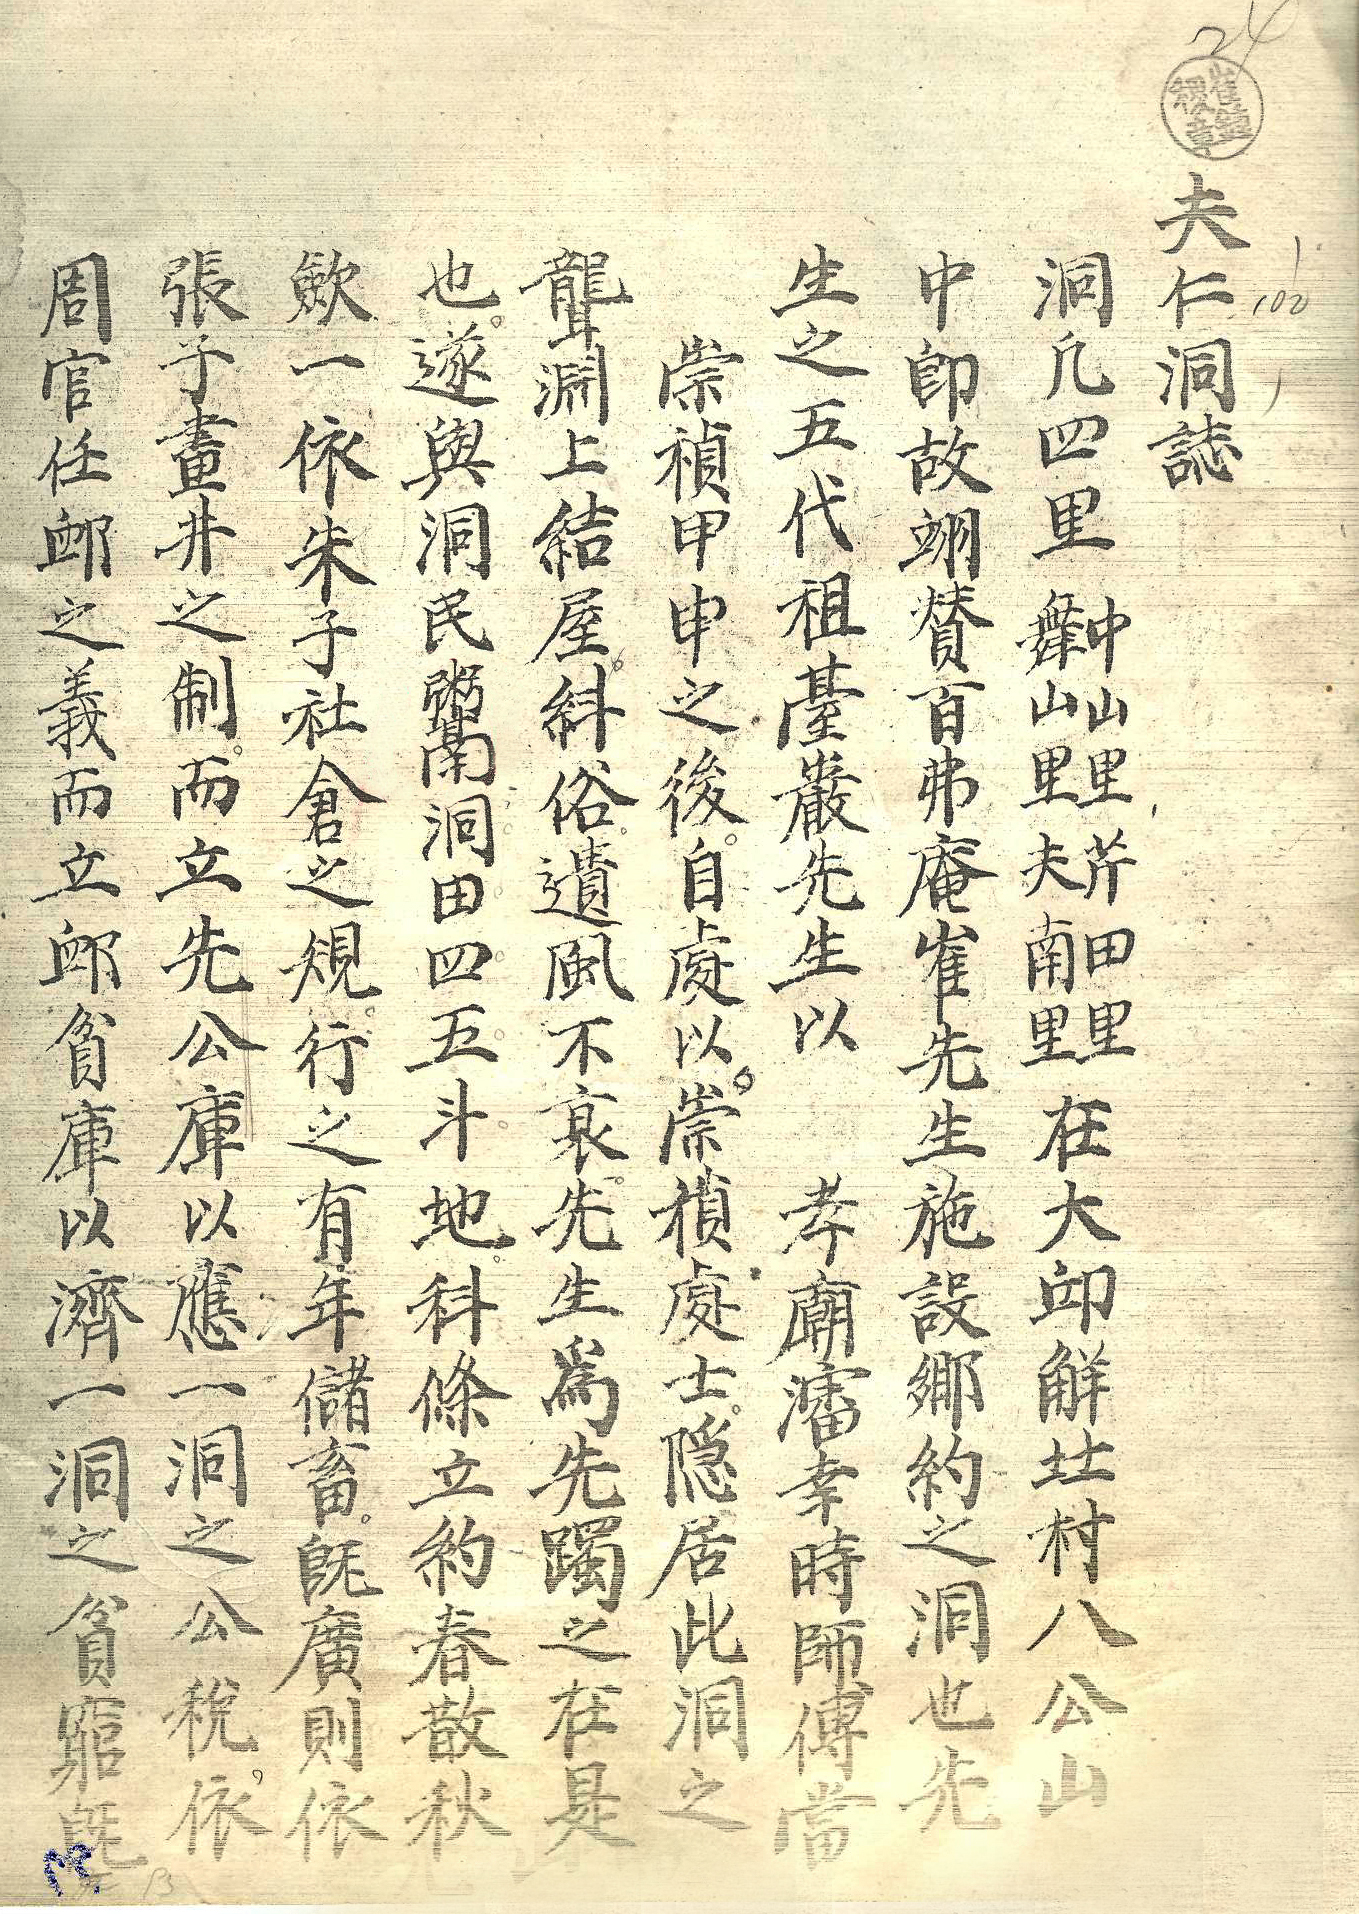 24
夫仁洞誌
100
洞凡四里 中山里芹田里 舞山里夫南里 在大邱解北村八公山
中卽故翊贊百弗庵崔先生施設鄕約之洞也先
生之五代祖臺巖先生以 孝廟瀋幸時師傅當
崇禎甲申之後自處以崇禎處士隱居此洞之
聾淵上結屋糾俗遺風不衰先生爲先躅之在是
也遂與洞民鬻洞田四五斗地科條立約春散秋
歛一依朱子社倉之規行之有年儲畜旣廣則依
張子畫井之制而立先公庫以應一洞之公稅依
周官任卹之義而立卹貧庫以濟一洞之貧窮旣